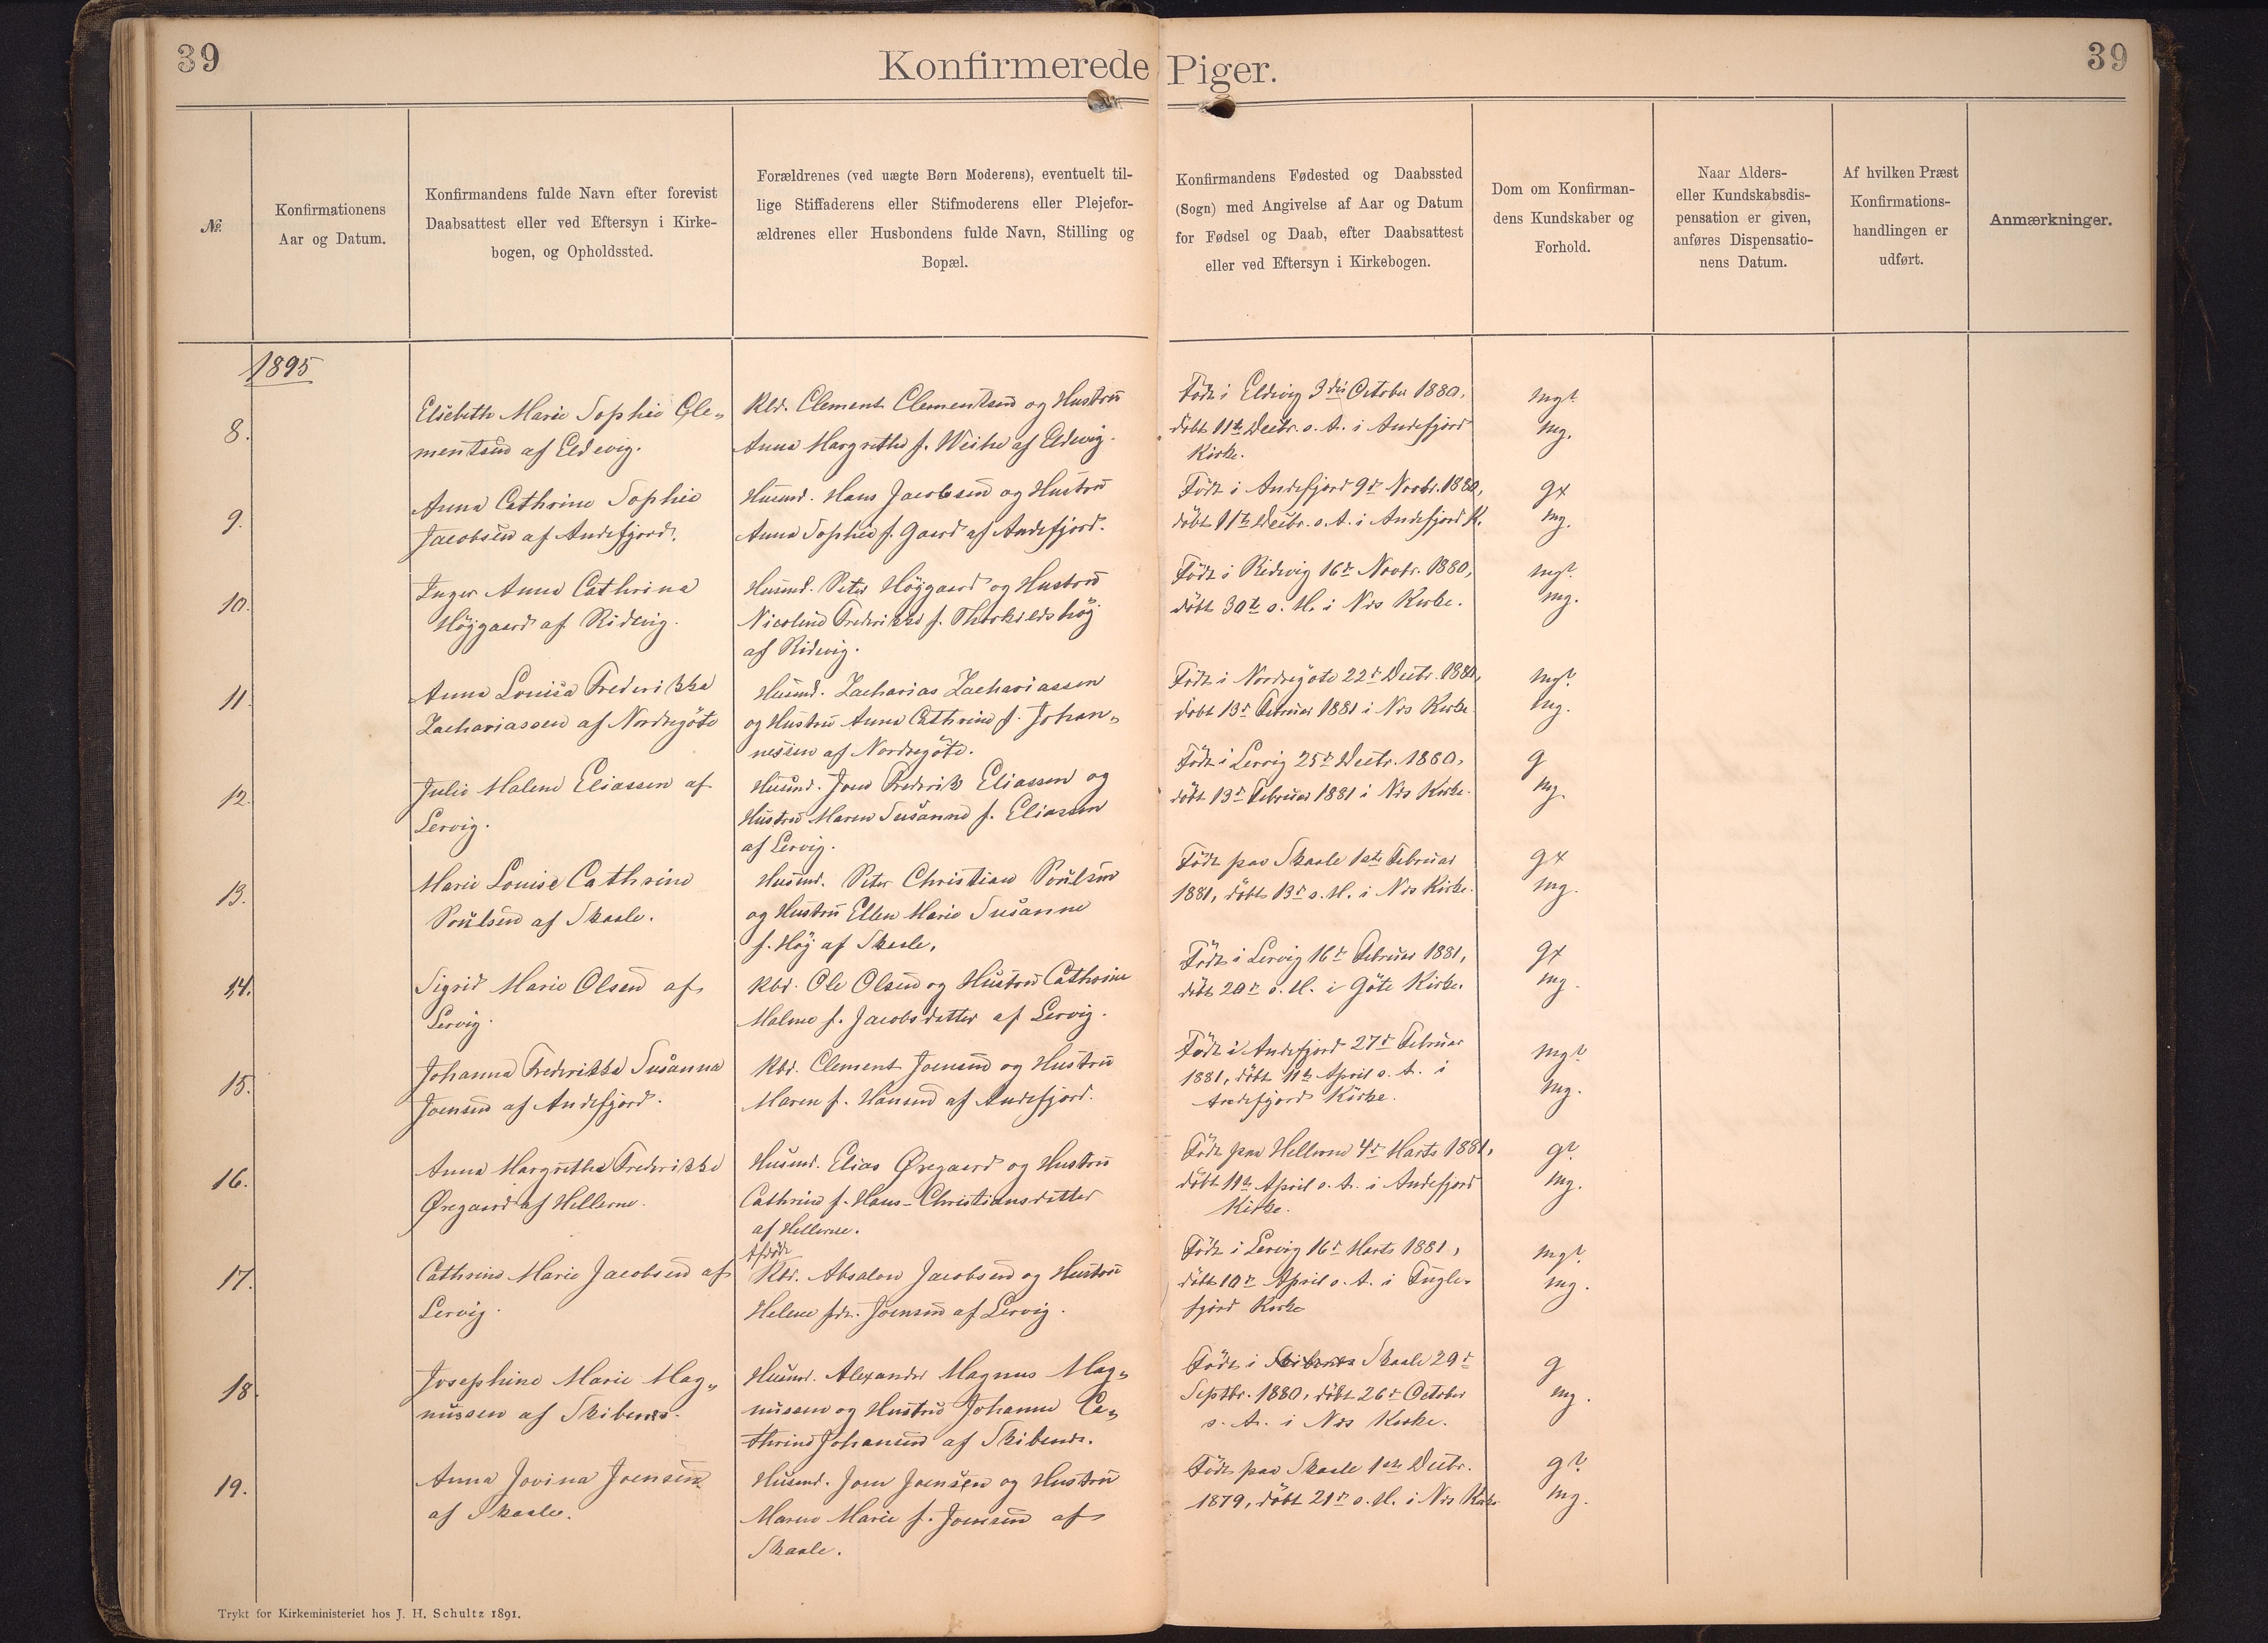 39
Konfirmerede Piger.
39
№
Konfirmationens
Aar og Datum.
Konfirmandens fulde Navn efter forevist
Daabsattest eller ved Eftersyn i Kirke-
bogen, og Opholdssted.
Forældrenes (ved uægte Børn Moderens), eventuelt til-
lige Stiffaderens eller Stifmoderens eller Plejefor-
ældrenes eller Husbondens fulde Navn, Stilling og
Bopæl.
Konfirmandens Fødested og Daabssted
(Sogn) med Angivelse af Aar og Datum
for Fødsel og Daab, efter Daabsattest
eller ved Eftersyn i Kirkebogen.
Dom om Konfirman-
dens Kundskaber og
Forhold.
Naar Alders-
eller Kundskabsdis-
pensation er given,
anføres Dispensatio-
nens Datum.
Af hvilken Præst
Konfirmations-
handlingen er
udført.
Anmærkninger.
1895
8.
Elsebeth Marie Sophie Cle„
mentsen af Eldevig.
Kbd. Clement Clementsen og Hustru
Anna Margrethe f. Weihe af Eldevig.
Födt i Eldevig 3die October 1880,
döbt 11te Decbr. s. A. i Andefjord
Kirke.
mg?
mg.
9.
Anna Cathrine Sophie
Jacobsen af Andefjord.
Husmd. Hans Jacobsen og Hustru
Anna Sophie f. Gaard af Andefjord.
Födt i Andefjord 9d Novbr. 1880,
döbt 11te Decbr. s. A. i Andefjord K.
g+
mg.
10.
Inger Anna Cathrina
Höjgaard af Ridevig.
Husmd. Peter Höjgaard og Hustru
Nicoline Frederikke f. Thorkildshöj
af Ridevig.
Födt i Ridevig 16d Novbr. 1880,
döbt 30te s. M. i Næs Kirke.
mg?
mg.
11.
Anna Louisa Frederikka
Zachariassen af Nordregöte
Husmd. Zacharias Zachariassen
og Hustru Anna Cathrine f. Johan„
nessen af Nordregöte.
Födt i Nordregöte 22d Decbr. 1880,
döbt 13d Februar 1881 i Næs Kirke.
mg?
mg.
12.
Julie Malene Eliassen af
Lervig.
Husmd. Joen Frederik Eliassen og
Hustru Maren Susanne f. Eliassen
af Lervig.
Födt i Lervig 25d Decbr. 1880,
döbt 13d Februar 1881 i Næs Kirke.
g
mg.
13.
Marie Louise Cathrine
Poulsen af Skaale.
Husmd. Peter Christian Poulsen
og Hustru Ellen Marie Susanne
f. Höj af Skaale.
Födt paa Skaale 1ste Februar
1881, döbt 13d s. M. i Næs Kirke.
g+
mg.
14.
Sigrid Marie Olsen af
Lervig.
Kbd. Ole Olsen og Hustru Cathrine
Malene f. Jacobsdatter af Lervig.
Födt i Lervig 16d Februar 1881,
döbt 20d s. M. i Göte Kirke.
g+
mg.
15.
Johanna Frederikka Susanna
Joensen af Andefjord.
Kbd. Clement Joensen og Hustru
Maren f. Hansen af Andefjord.
Födt i Andefjord 27d Februar
1881, döbt 11te April s. A. i
Andefjord Kirke.
mg?
mg.
16.
Anna Margretha Frederikke
Øregaard af Hellerne.
Husmd. Elias Øregaard og Hustru
Cathrine f. Hans-Christiansdatter
af Hellerne.
Födt paa Hellerne 4d Marts 1881,
döbt 11te April s. A. i Andefjord
Kirke.
g?
mg.
17.
Cathrine Marie Jacobsen af
Lervig.
Afdöde
Kbd. Absalon Jacobsen og Hustru
Helene fdt. Joensen af Lervig.
Födt i Lervig 16d Marts 1881,
döbt 10d April s. A. i Fugle-
fjord Kirke
mg?
mg.
18.
Josephine Marie Mag„
nussen af Skibenæs.
Husmd. Alexander Magnus Mag„
nussen og Hustru Johanne Ca„
thrine Johansen af Skibenæs.
Födt i Skibenæs Skaale 29d
Septbr. 1880, döbt 26d October
s. A. i Næs Kirke.
g
mg.
19.
Anna Jovina Joensen
af Skaale.
Husmd. Joen Joensen og Hustru
Maren Marie f. Joensen af
Skaale.
Födt paa Skaale 1ste Decbr.
1879, döbt 21d s. M. i Næs Kirke
g?
mg.
Trykt for Kirkeministeriet hos J. H. Schultz 1891.